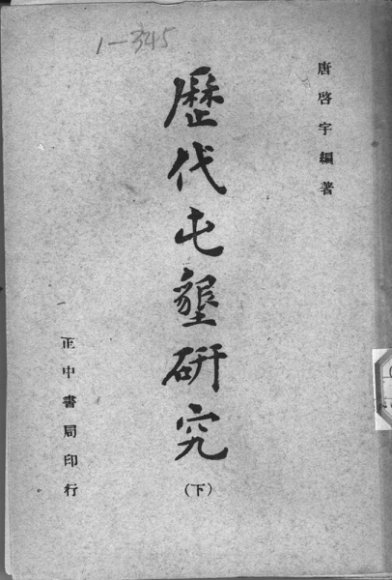 1-345
唐啓宇編著
歷代屯墾研究
（下）
正中書局印行